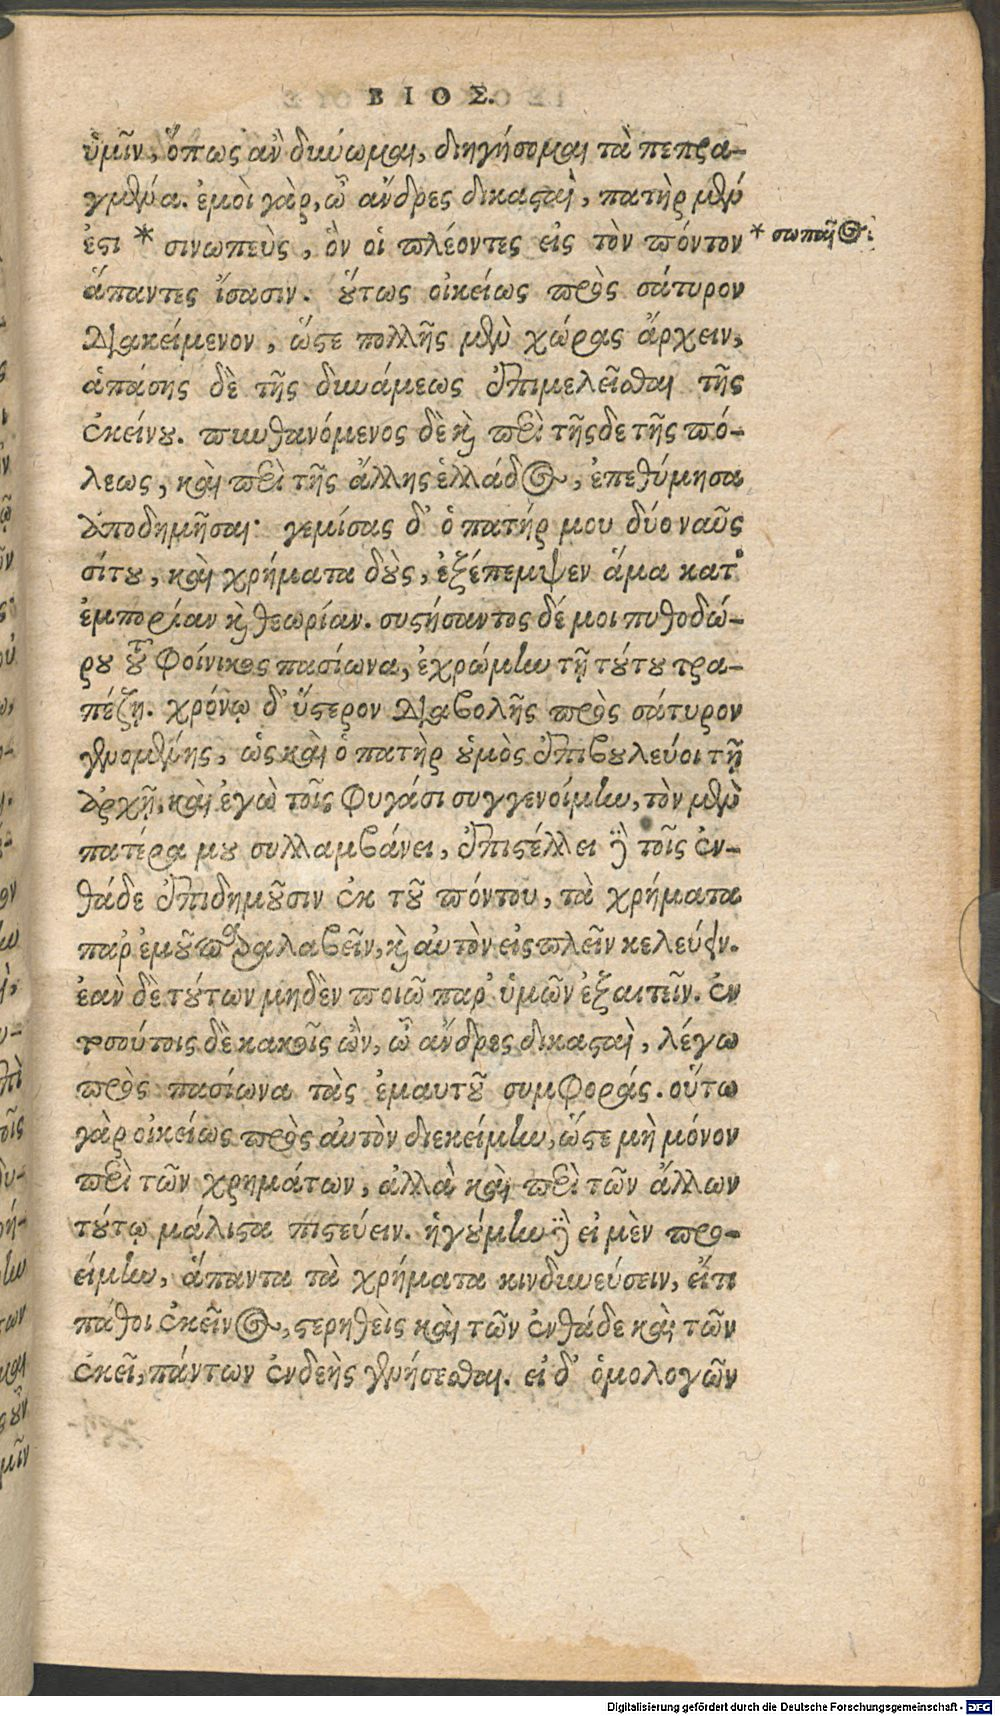 ΒΙΟΣ.
ὑμῖν, ὅπως ἂν δύνωμαι, διηγήσομαι τὰ πεπρα-
γμένα. ἐμοὶ γὰρ, ὦ ἄνδρες δικασταὶ, πατὴρ μὲν
ἐστι * σινωπεὺς, ὃν οἱ πλέοντες εἰς τὸν πόντον
* σωπαῖος
ἅπαντες ἴσασιν. οὕτως οἰκείως πρὸς σάτυρον
διακείμενον, ὥστε πολλῆς μὲν χώρας ἄρχειν,
ἁπάσης δὲ τῆς δυνάμεως ἐπιμελεῖσθαι τῆς
ἐκείνου. πυνθανόμενος δὲ καὶ περὶ τῆς δε τῆς πό-
λεως, καὶ περὶ τῆς ἄλλης ἑλλάδος, ἐπεθύμησα
ἀποδημῆσαι· γεμίσας δ' ὁ πατήρ μου δύο ναῦς
σίτου, καὶ χρήματα δοὺς, ἐξέπεμψεν ἅμα κατ'
ἐμπορίαν καὶ θεωρίαν. συστήσαντος δέ μοι πυθοδώ-
ρου τοῦ φοίνικος πασίωνα, ἐχρώμην τῇ τούτου τρα-
πέζῃ. χρόνῳ δ' ὕστερον διαβολῆς πρὸς σάτυρον
γενομένης, ὡς καὶ ὁ πατὴρ οὑμὸς ἐπιβουλεύοι τῇ
ἀρχῇ, καὶ ἐγὼ τοῖς φυγάσι συγγενοίμην, τὸν μὲν
πατέρα μου συλλαμβάνει, ἐπιστέλλει δὲ τοῖς ἐν-
θάδε ἐπιδημοῦσιν ἐκ τοῦ πόντου, τὰ χρήματα
παρ' ἐμοῦ παραλαβεῖν, καὶ αὐτὸν εἰσπλεῖν κελεύειν.
ἐὰν δὲ τούτων μηδὲν ποιῶ παρ' ὑμῶν ἐξαιτεῖν. ἐν
τοσούτοις δὲ κακοῖς ὢν, ὦ ἄνδρες δικασταὶ, λέγω
πρὸς πασίωνα τὰς ἐμαυτοῦ συμφοράς. οὕτω
γὰρ οἰκείως πρὸς αὐτὸν διεκείμην, ὥστε μὴ μόνον
περὶ τῶν χρημάτων, ἀλλὰ καὶ περὶ τῶν ἄλλων
τούτῳ μάλιστα πιστεύειν. ἡγούμην δὲ εἰ μὲν προ-
είμην, ἅπαντα τὰ χρήματα κινδυνεύσειν, εἴ τι
πάθοι ἐκεῖνος, στερηθεὶς καὶ τῶν ἐνθάδε καὶ τῶν
ἐκεῖ, πάντων ἐνδεὴς γενήσεσθαι. εἰ δ' ὁμολογῶν
Digitalisierung gefördert durch die Deutsche Forschungsgemeinschaft - DFG